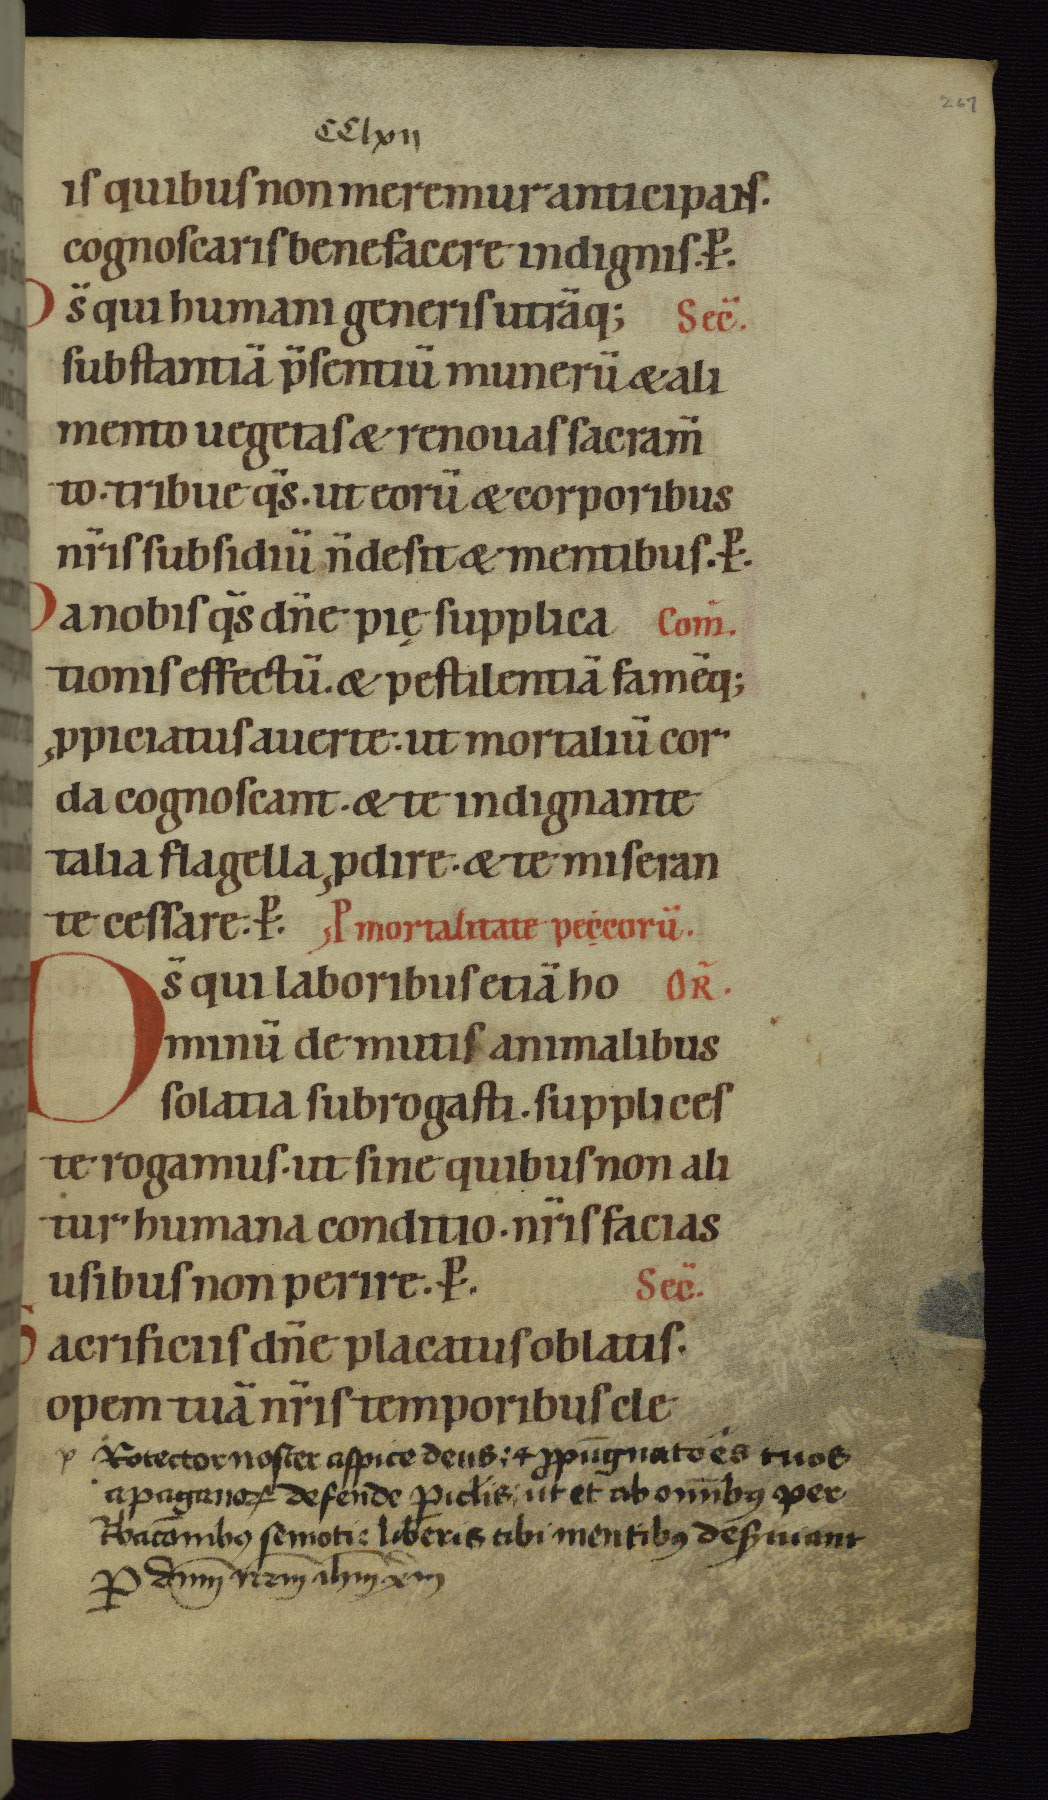 267
CClxii
is quibus non meremur anticipans.
cognoscaris benefacere indignis. P̄.
Ds̄ qui humani generis utrāq; Sec̄.
substantiā p̄sentiū munerū & ali
mento uegetas & renouas sacram̄
to. tribue q̄s. ut eorū & corporibus
nr̄is subsidiū n̄ desit & mentibus. P̄.
Da nobis q̄s dn̄e pię supplica Com̄.
tionis effectū. & pestilentiā famēq;
ꝓpiciatus auerte. ut mortaliū cor
da cognoscant. & te indignante
talia flagella ꝓdire. & te miseran
te cessare. P̄. Ꝓ mortalitate pęccorū.
Ds̄ qui laboribus etiā ho OR̄.
minū de mutis animalibus
solatia subrogasti. supplices
te rogamus. ut sine quibus non ali
tur humana conditio. nr̄is facias
usibus non perire. P̄. Sec̄.
Sacrificiis dn̄e placatus oblatis.
opem tuā nr̄is temporibus cle
p Rotector noster aspice deus; & ꝓpūgnatoēs tuos
a paganoꝝ defende ꝑiclis; ut et ab om̄ibꝯ per
tbacōnibꝯ semoti: liberis tibi mentibꝯ deẜuiant
P dn̄m nr̄m ih̄m xp̄m